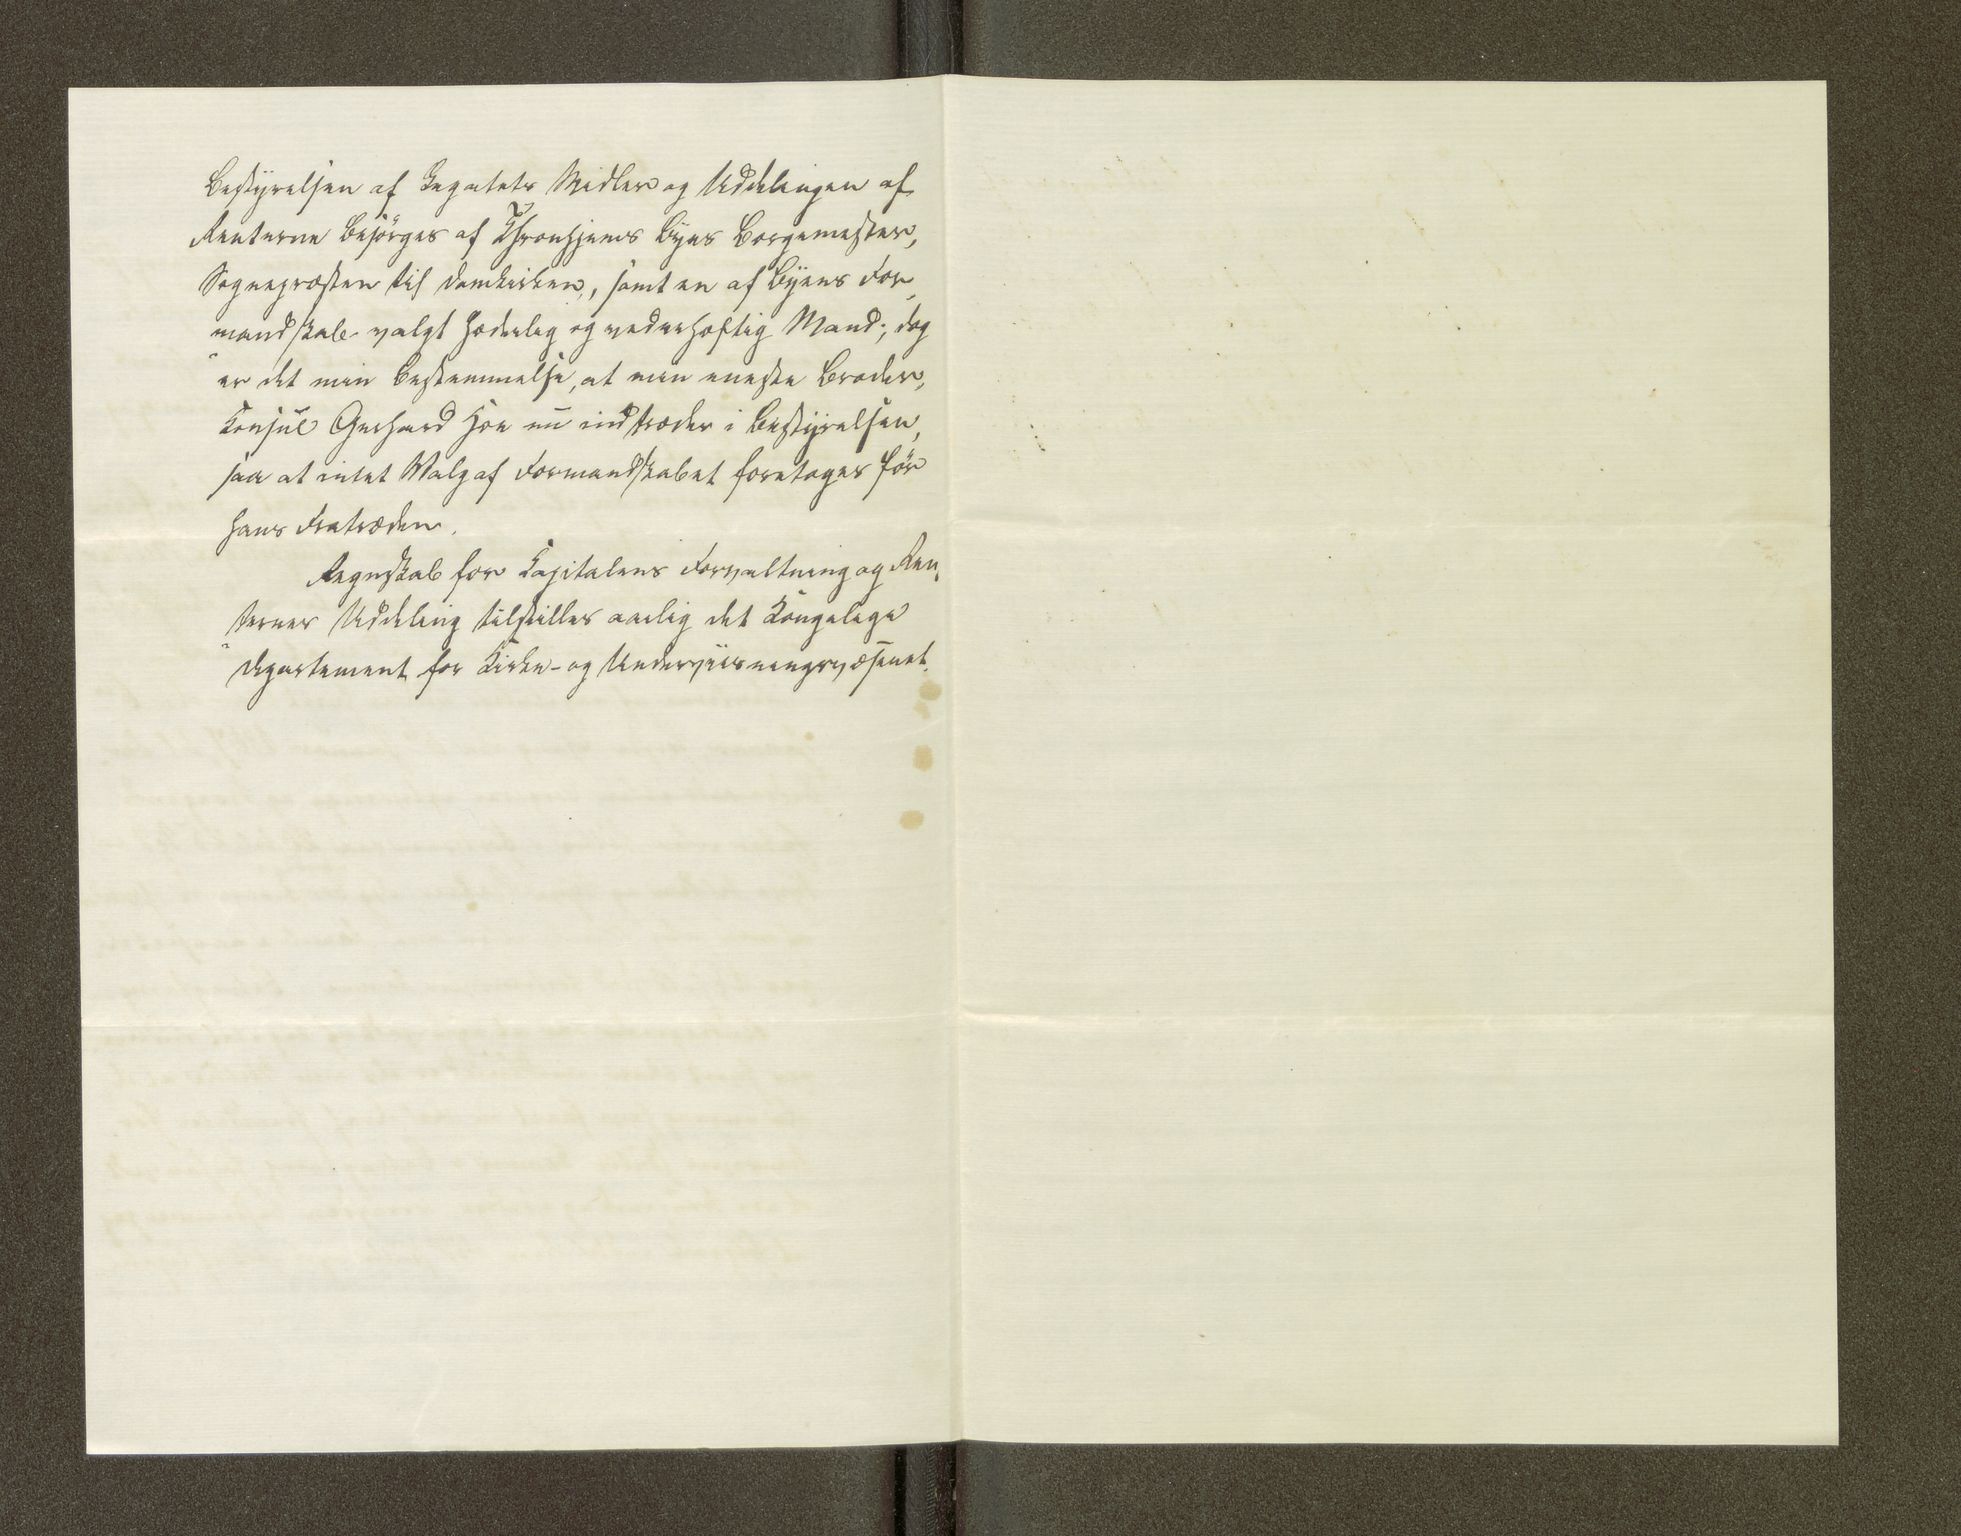 Bestyrelsen af Legatets Midler og Uddelingen af
Renterne besörges af Thronhjems Byes Borgemester,
Sognepræsten til Domkirken, samt en af Byens For¬
mandskab valgt hæderlig og vederhæftig Mand; dog
er det min Bestemmelse, at min eneste Broder,
Konsul Gerhard Hoe nu indtræder i Bestyrelsen,
saa at intet Valg af Formandskabet foretages för
hans Fratræden.
Regnskab for Kapitalens Forvaltning og Ren¬
ternes Uddeling tilstilles aarlig det Kongelige
Departement for Kirke- og Underviisningsvæsenet.